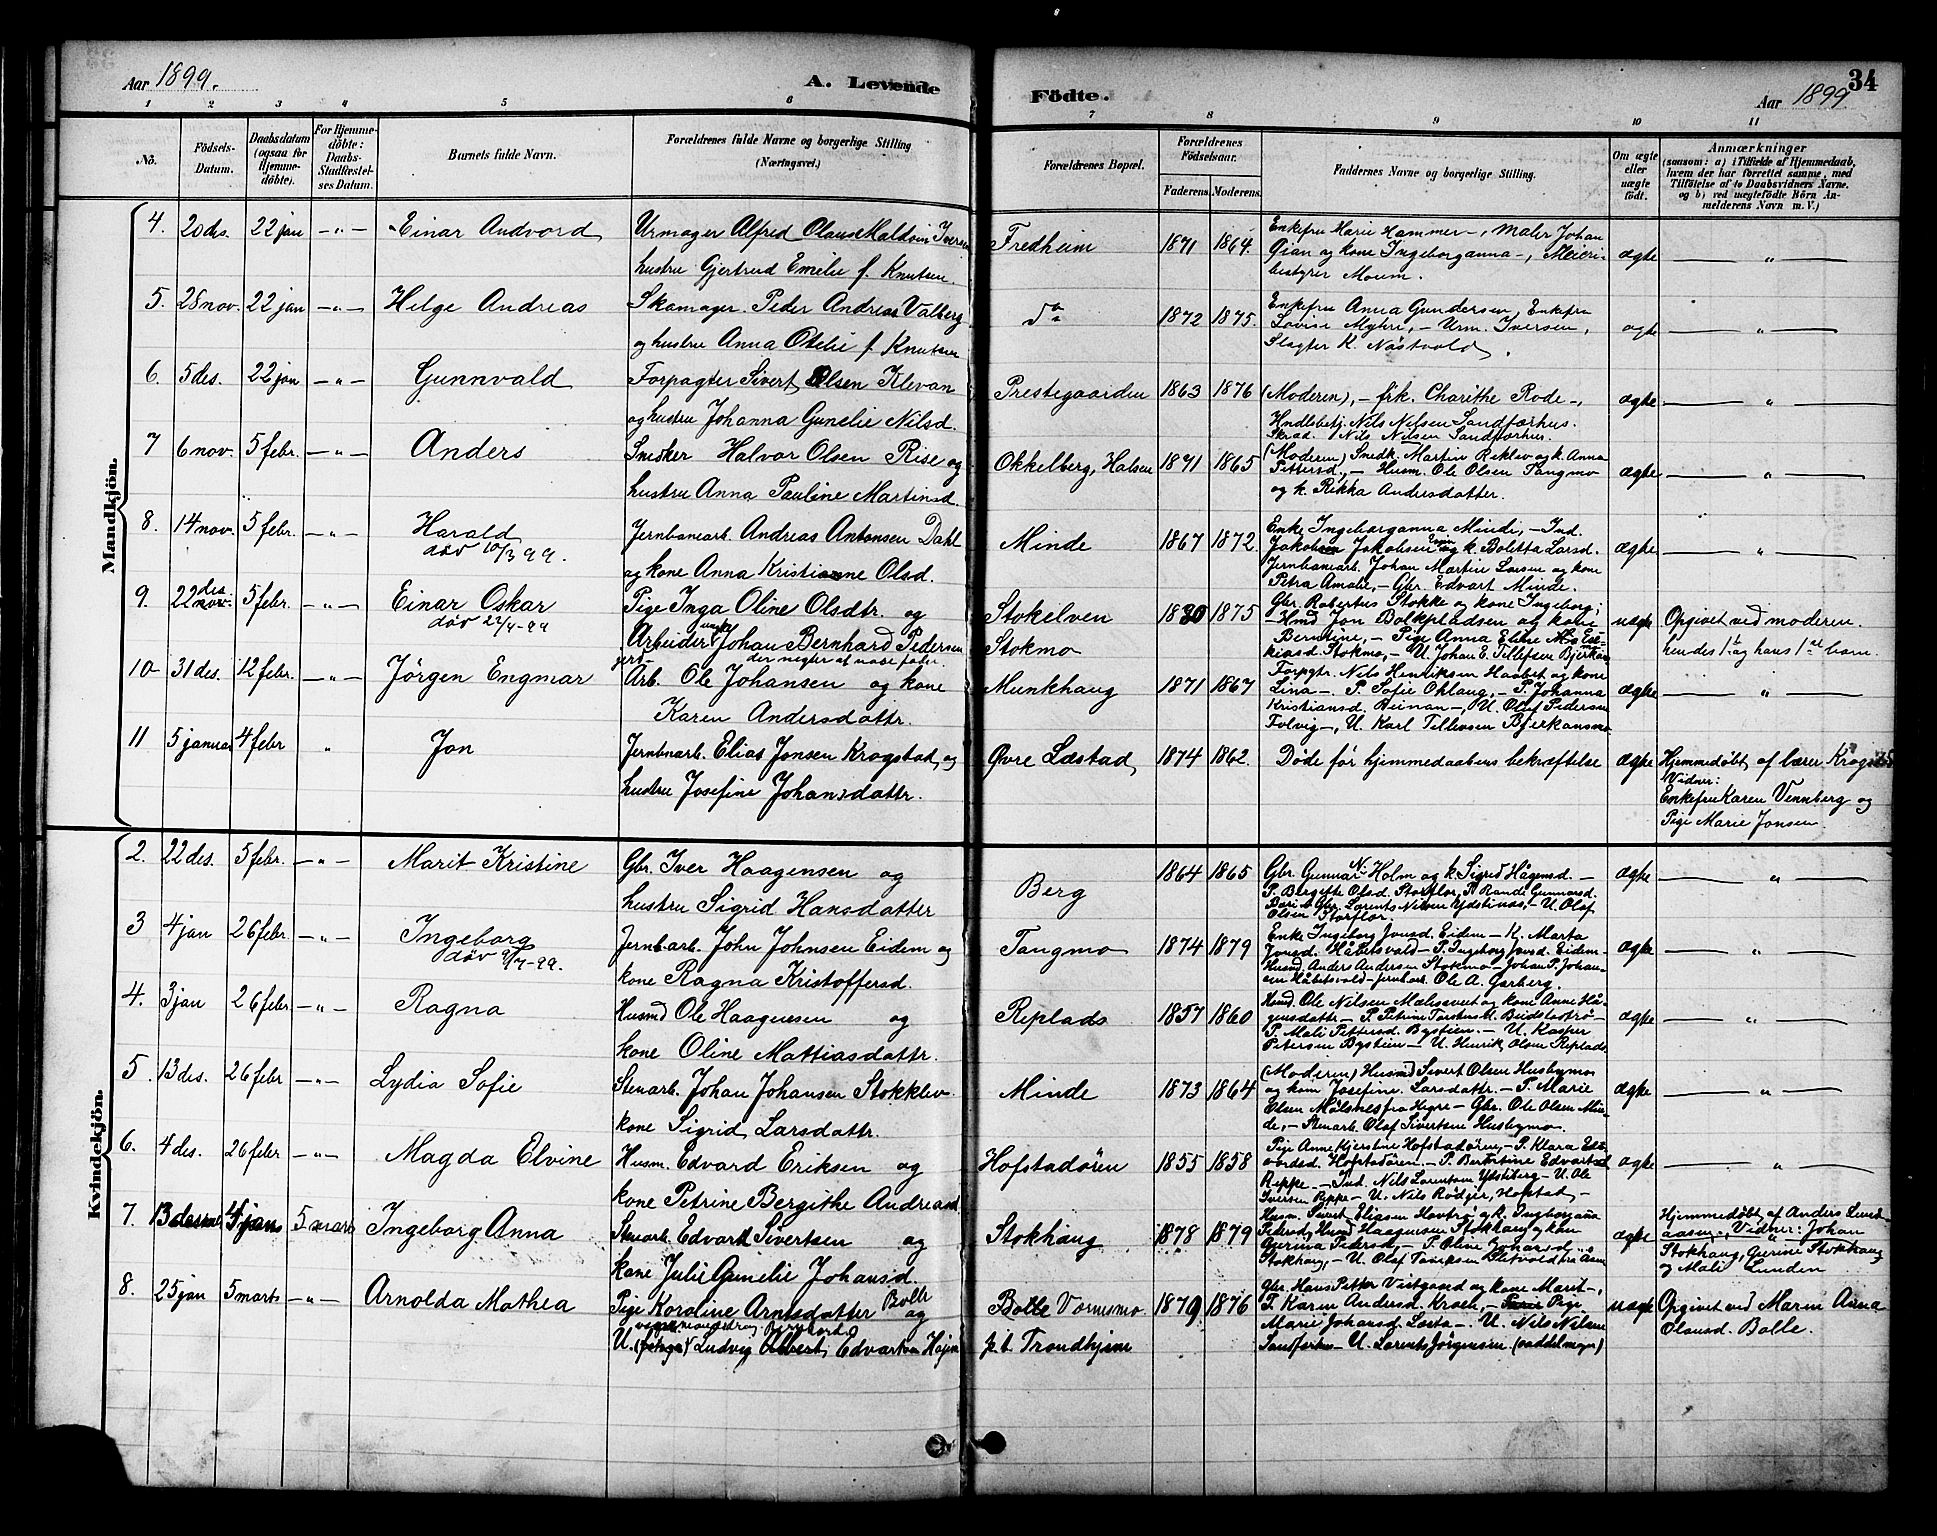 Aar 1899.
A. Levende
1 2 3 4 5 6
No.
Fødsels-Datum.
Daabsdatum (ogsaa for Hjemme-døbte).
For Hjemme-døbte: Daabs-Stadfæstel-ses Datum.
Barnets fulde Navn.
Forældrenes fulde Navne og borgerlige Stilling (Næringsvei.)
Mandkjön.
4. 20 des. 22 jan —„— Einar Andvord Urmager Alfred Olaus Haldvin Iversen
hustru Gjertrud Emelie f. Knutsen.
5. 28 nov. 22 jan —„— Helge Andreas Skomager Peder Andreas Valberg
og hustru Anna Otelie f. Knutsen
6. 5 des. 22 jan —„— Gunnvald Forpagter Sivert Olsen Klevan
og hustru Johanna Gunelie Nilsd.
7 6 nov. 5 febr. —„— Anders Snekker Halvor Olsen Rise og
hustru Anna Pauline Martinsd.
8. 14 nov. 5 febr. —„— Harald Jernbanearb. Andreas Antonsen Dahl
död 10/3 99.
og kone Anna Kristianne Olsd.
9. 22 des. 5 febr. —„— Einar Oskar Pige Inga Oline Olsdtr. og
död 22/4-99
Arbeider ungk. Johan Bernhard Pedersen
der negter at være fader.
10 31 des. 12 febr. —„— Jörgen Engmar Arb. Ole Johansen og kone
Karen Andersdattr.
11 5 januar 4 febr „ Jon Jernbnarb. Elias Jonsen Krogstad og
hustru Josefine Johansdattr.
Kvindekjön.
2. 22 des. 5 febr. —„— Marit Kristine Gbr. Iver Haagensen og
hustru Sigrid Hansdatter
3 4 jan 26 febr. —„— Ingeborg Jernbarb. John Johnsen Eidem og
död 9/7-99.
kone Ragna Kristoffersd.
4. 3 jan 26 febr —„— Ragna Husmd Ole Haagensen og
kone Oline Mattiasdattr.
5. 13 des. 26 febr —„— Lydia Sofie Stenarb. Johan Johansen Stokklev.
kone Sigrid Larsdattr.
6. 4 des. 26 febr —„— Magda Elvine Husm. Edvard Eriksen og
kone Petrine Bergithe Andreasd
7. 13 desember 4 jan 5 marts Ingeborg Anna Stenarb. Edvard Sivertsen og
kone Julie Gunelie Johansd.
8. 25 jan 5 marts —„— Arnolda Mathea Pige Karoline Arntsdatter Bolle og
U. Ludvig Albert Edvartsen Højem
34
Fødte.
Aar 1899
7 8 9 10 11
Forældrenes Bopæl.
Forældrenes Fødselsaar.
Faderens. Moderens.
Faddernes Navne og borgerlige Stilling.
Om ægte eller uægte født.
Anmærkninger
(saasom: a) i Tilfælde af Hjemmedaab, hvem der har forrettet samme, med Tilføielse af to Daabsvidners Navne. og b) ved uægtefødte Børn An-melderens Navn m. V.)
Fredheim 1871 1864. Enkefru Marie Hammer —, Maler Johan
Qian og kone Ingeborganna —, Meieri-
bestyrer Moum. ægte — „ —
do 1872 1875. Enkefru Anna Gundersen, Enkefru
Lovise Myhre, — Urm. Iversen,
Slagter K. Nöstvold. ægte — „ —
Prestegaarden 1863 1876 (Moderen), — frk. Charithe Rode —,
Hndlsbetj. Nils Nilsen Sandfærhus.
Skræd. Nils Nilsen Sandfærhus. ægte — „ —
Okkelberg, Halsen 1871 1865 (Moderen) Snedk. Martin Reklev og k. Anna
Pettersd., — Husm. Ole Olsen Tangmo
og k. Rikka Andersdatter. ægte — „ —
Minde 1867 1872. Enke Ingeborganna Minde, — Ind.
Jakobsen og k. Boletta Larsd.
Jernbanearb. Johan Martin Larsen og kone
Petra Amalie, — Gbr. Edvart Minde. ægte — „ —
Stokelven 1880 1875 Gbr. Robertus Stokke og kone Ingeborg,
Stokmo — Hmd Jon Bolkpladsen og kone
Berntine, — Pige Anna Eline
Stokmo, — U. Johan E. Tillefsen Bjerkan uægte Opgivet ved moderen.
hendes 1ste og hans 1ste barn.
Munkhaug 1871 1867 Forpgtr. Nils Henriksen Haabet og kone
Lina —. P. Sofie Oklaug, — P. Johanna
Kristiansd. Reinan —, U. Olaf Pedersen
Folvig —, U. Karl Tillevsen Bjerkansmo ægte — „ —
Øvre Læstad 1874 1862. Døde før hjemmedaabens bekræftelse ægte Hjemmedøbt af lærer Krogstad
Vidner:
Enkefru Karen Vennberg og
Pige Marie Jonsen
Berg 1864 1865 Gbr. Gunnar N. Holm og k. Sigrid Hågensd. —
P. Bergitte Olsd. Storflor, P. Randi Gunnarsd.
Gbr. Lorents Nilsen Ydstines, — U. Olaf
Olsen Storflor. ægte — „ —
Tangmo 1874 1879 Enke Ingeborg Jonsd. Eidem — K. Marta
Jonsd. Håbetsvold — P. Ingeborg Jonsd. Eidem —
Husmd Anders Andersen Stokmo — Johan P. Johan-
sen Håbetsvold — Jernbarb. Ole A. Garberg. ægte — „ —
Replads 1857 1860 Hmd. Ole Nilsen Mælisævet og kone Anne Hå-
gensdattr — P. Petrine Torstens. Beidstadtrø —
P. Mali Pettersd. Bystien. — U. Kasper
Petersen Bystien — U. Henrik Olsen Replads ægte — „ —
Minde 1873 1864 (Moderen) Husmd Sivert Olsen Husbymo
og kone Josefine Larsdattr. — P. Marie
Olsen Målsnes fra Hegre — Gbr. Ole Olsen Min-
de, — Stenarb. Olaf Sivertsen Husbymo. ægte — „ —
Hofstadören 1855 1858 Pige Anne Kjerstine Hofstadören, — P. Klara Ed-
vardsd. Hofstadören. — P. Berntine Edvartsd
Reppe. — Ind. Nils Lorentsen Ydstiberg — U. Ole
Iversen Reppe — U. Nils Rödsjer, Hofstad, — ægte — „ —
Stokhaug 1878 1879 Husm. Sivert Eliasen Hovtrø og k. Ingborgana
Pedersd, Husmd Haagensen Stokhaug og kone
Gurina Pedersd, — P. Oline Joharsd
Stokhaug, — U. Olaf ægte Hjemmedøbt af Anders Lund-
aasen, Vidner: Johan
Stokhaug, Gurine Stokhaug
og Mali Lunden
Bolle Vormesmo 1879 1876 Gbr. Hans Petter Vestgaard og kone Marit —,
p.t. Trondhjem P. Karen Andersd. — Pige
Marie Johansd. Læsta —. U. Nils Nilsen
Sandfærhus — U. Lorents Jörgensen (saddelmager) uægte Opgivet ved Maren Anna
Olausd. Bolle.